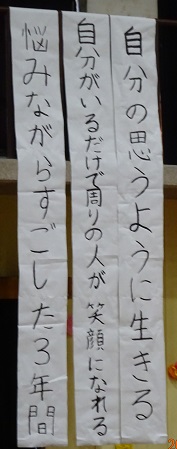 自分の思うように生きる
自分がいるだけで周りの人が笑顔になれる
悩みながらすごした3年間